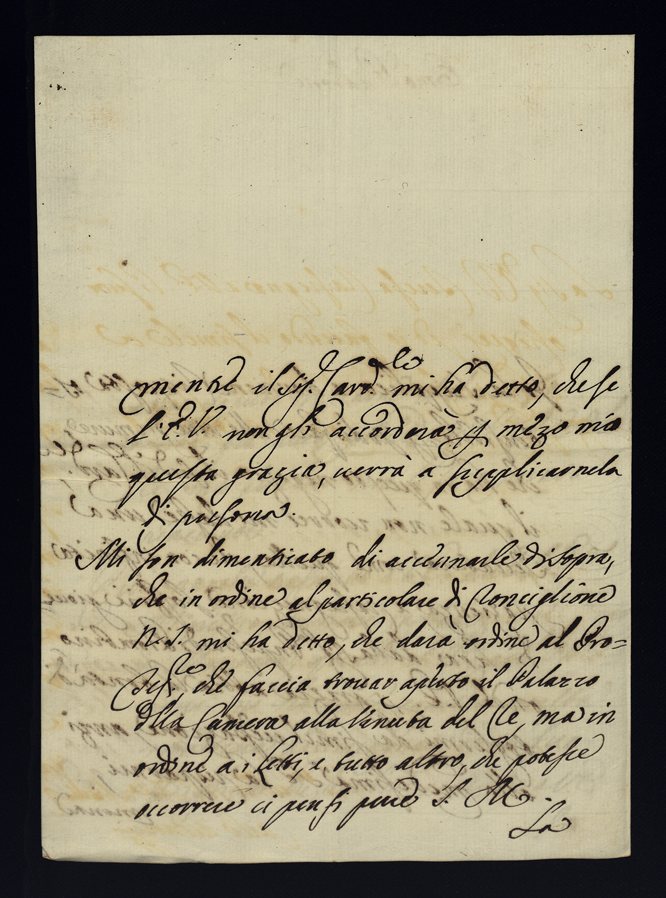 mentre il Sig. Card.le mi hà detto, che se
l'E. V. non gli accorderà p mezo mio
questa grazia, verrà a supplicarnela
di persona.
Mi son dimenticato di accennarle di sopra,
che in ordine al particolare di Ronciglione
N. S. mi hà detto, che darà ordine al Pro=
Tes.re, che faccia trovar aperto il Palazzo
della Camera alla venuta del Re, ma in
ordine a i letti, e tutto altro, che potesse
occorrere ci pensi pure S. M.
La